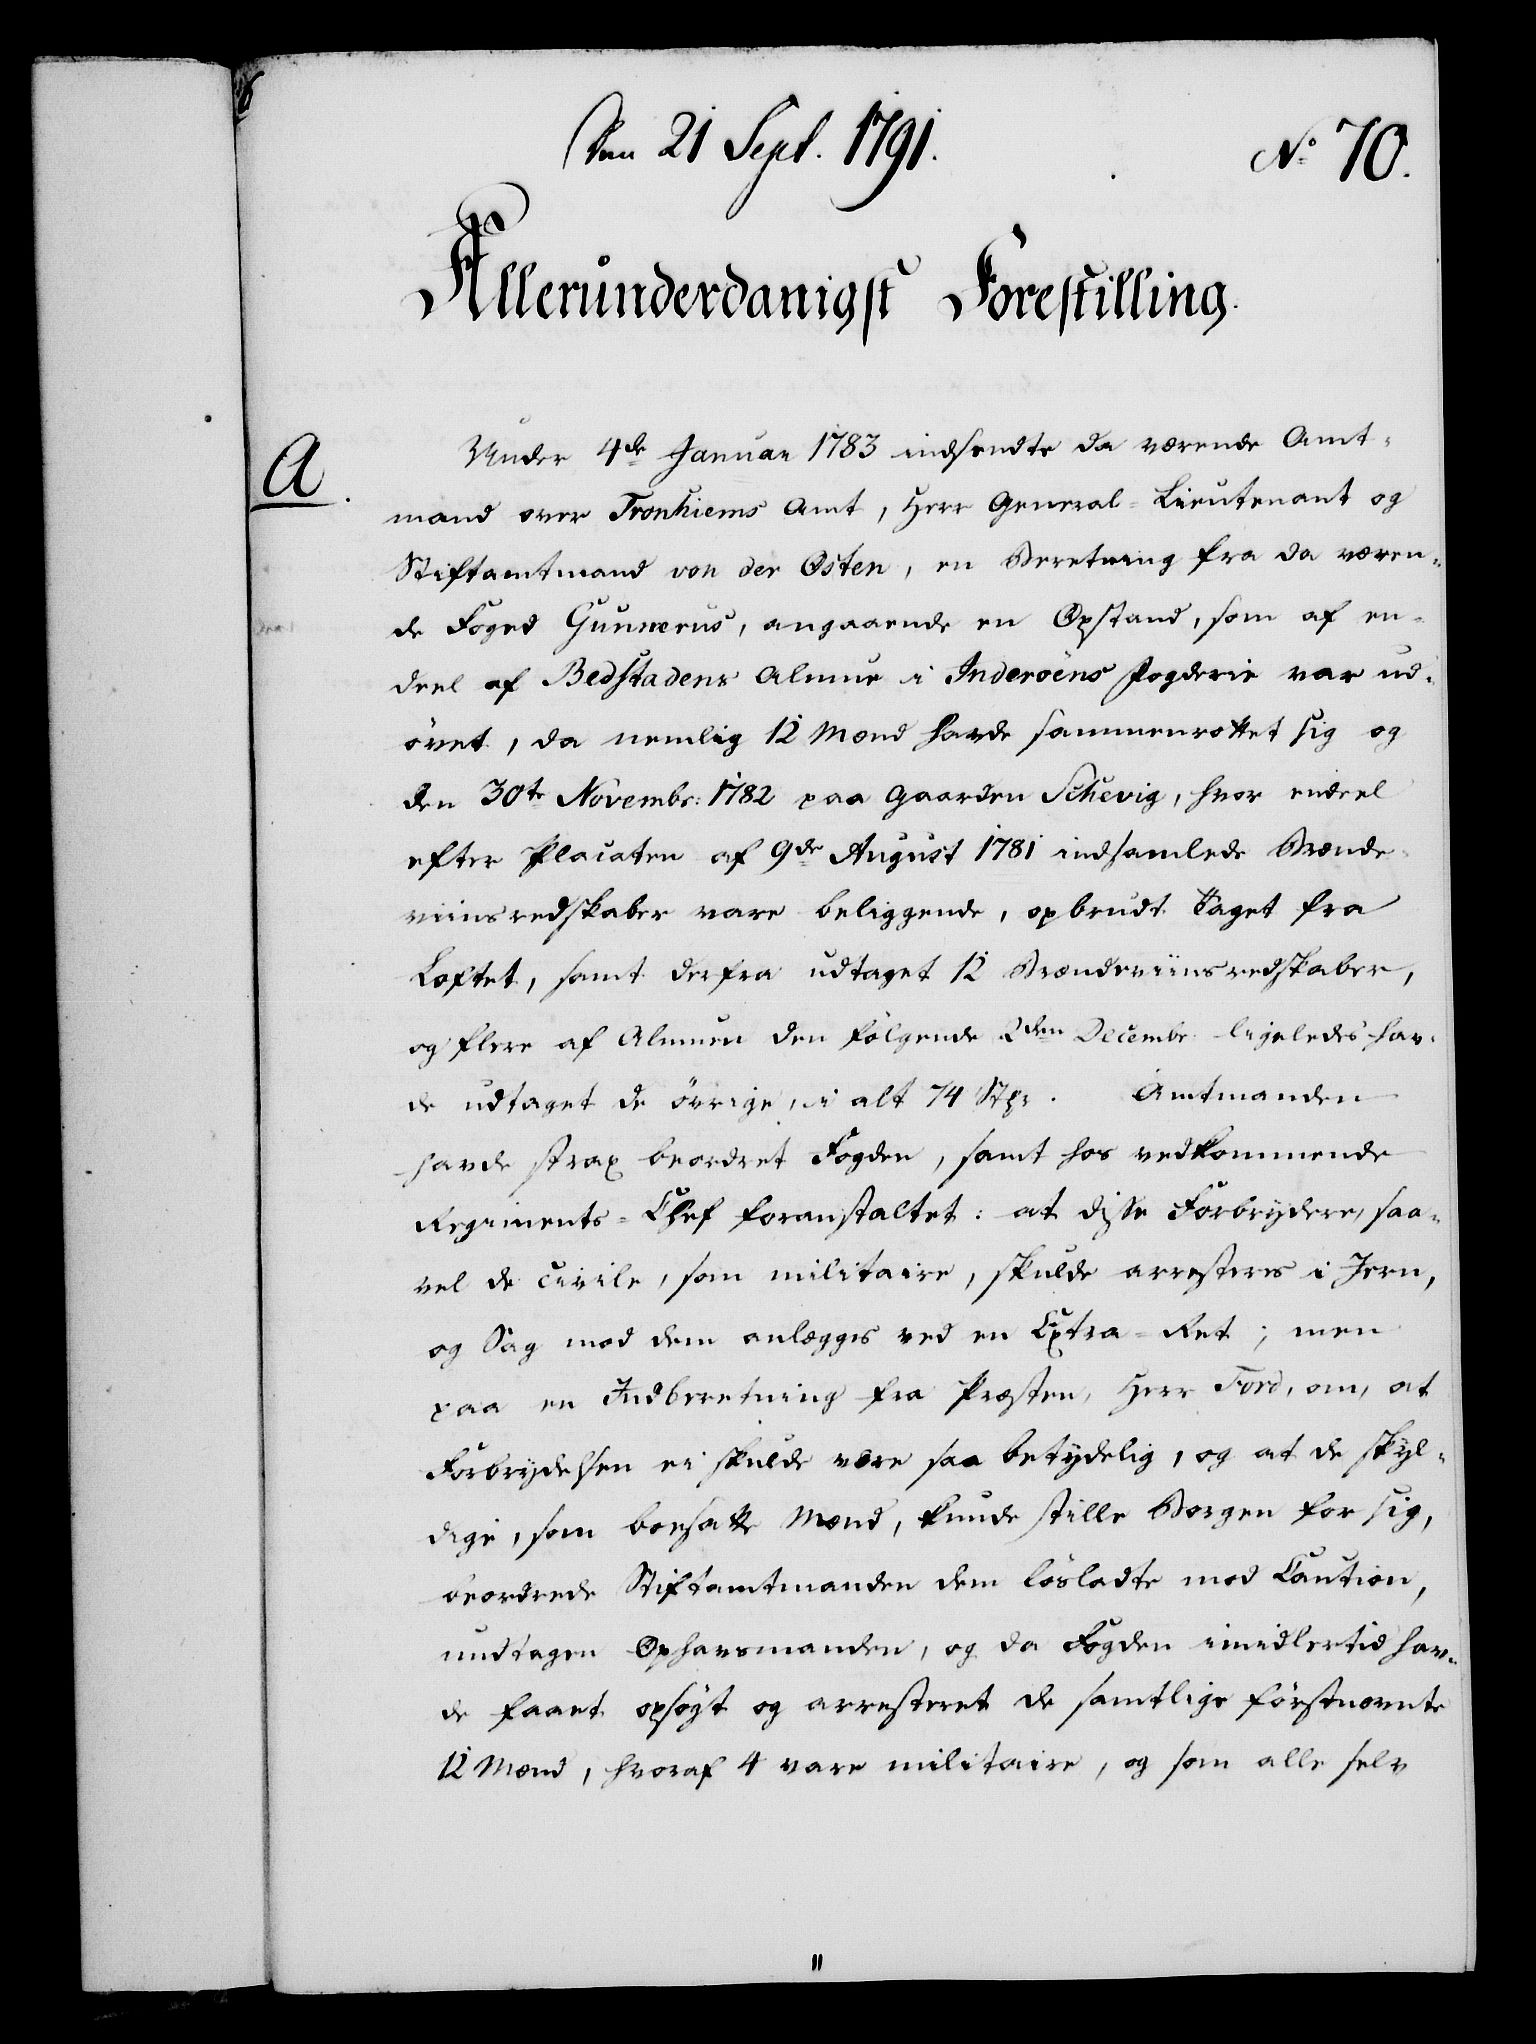 Den 21 Sept. 1791.
No 70.
Allerunderdanigst Forestilling.
A.
Under 4de Januar 1783 indsendte da værende Amt-
mand over Tronhiems Amt, Herr General-Lieutenant og
Stiftamtmand von der Osten, en Beretning fra da væren-
de Foged Gunnerus, angaaende en Opstand, som af en-
deel af Bedstadens Almue i Inderöens Fogderie var ud-
övet, da nemlig 12 Mænd havde sammenrottet sig og
den 30te Novembr: 1782 paa Gaarden Schevig, hvor endeel
efter Placaten af 9de August 1781 indsamlede Brænde-
viinsredskaber vare beliggende, opbrudt Taget fra
Loftet, samt derfra udtaget 12 Brændeviinsredskaber,
og flere af Almuen den følgende 2den Decembr. ligeledes hav-
de udtaget de övrige, i alt 74 Stkr. Amtmanden
havde strax beordret Fogden, samt hos vedkommende
Regiments-Chef foranstaltet: at disse Forbrydere, saa-
vel de civile, som militaire, skulde arresteres i Jern,
og Sag mod dem anlægges ved en Extra-Ret; men
paa en Indberetning fra Præsten, Herr Tord, om, at
Forbrydelsen ei skulde være saa betydelig, og at de skyl-
dige, som boesatte Mænd, kunde stille Borgen for sig,
beordrede Stiftamtmanden dem lösladte mod Caution,
undtagen Ophavsmanden, og da Fogden imidlertid hav-
de faaet opsøgt og arresteret de samtlige förstnævnte
12 Mænd, hvoraf 4 vare militaire, og som alle selv